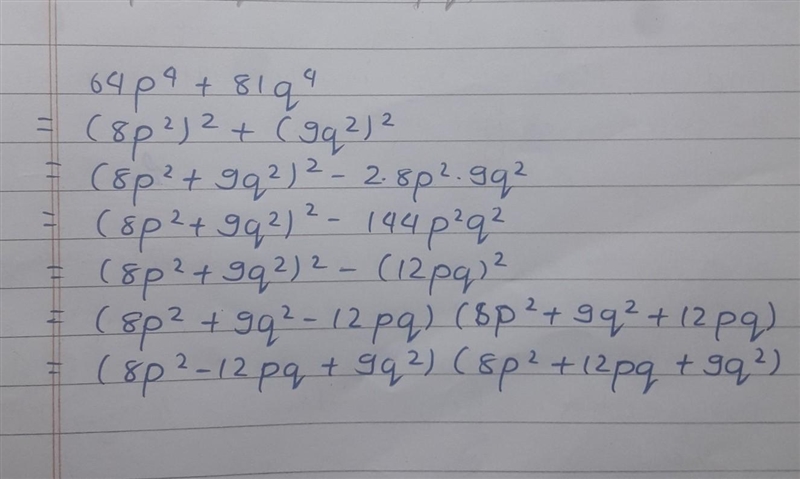 64p⁴ + 81q⁴
= (8p²)² + (9q²)²
= (8p² + 9q²)² - 2.8p².9q²
= (8p² + 9q²)² - 144p²q²
= (8p² + 9q²)² - (12pq)²
= (8p² + 9q² - 12pq) (8p² + 9q² + 12pq)
= (8p² - 12pq + 9q²) (8p² + 12pq + 9q²)